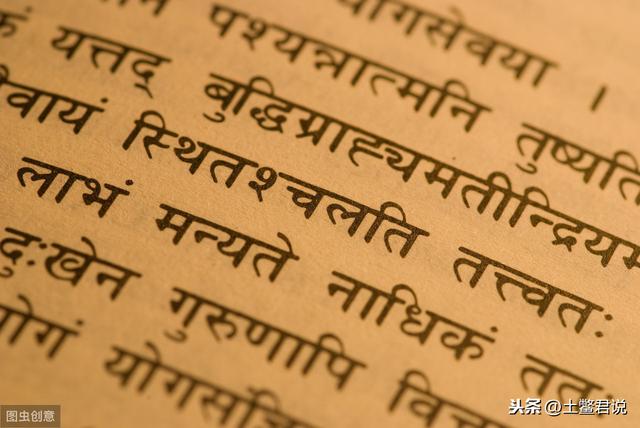 योगसेवया ।
पश्यन्नात्मनि तुष्यति
यत्तद् बुद्धिग्राह्यमतीन्द्रियम
स्थितश्चलति तत्त्वतः
लाभं मन्यते नाधिकं ततः
दुःखेन गुरुणापि
图虫创意
头条 @土鳖君说